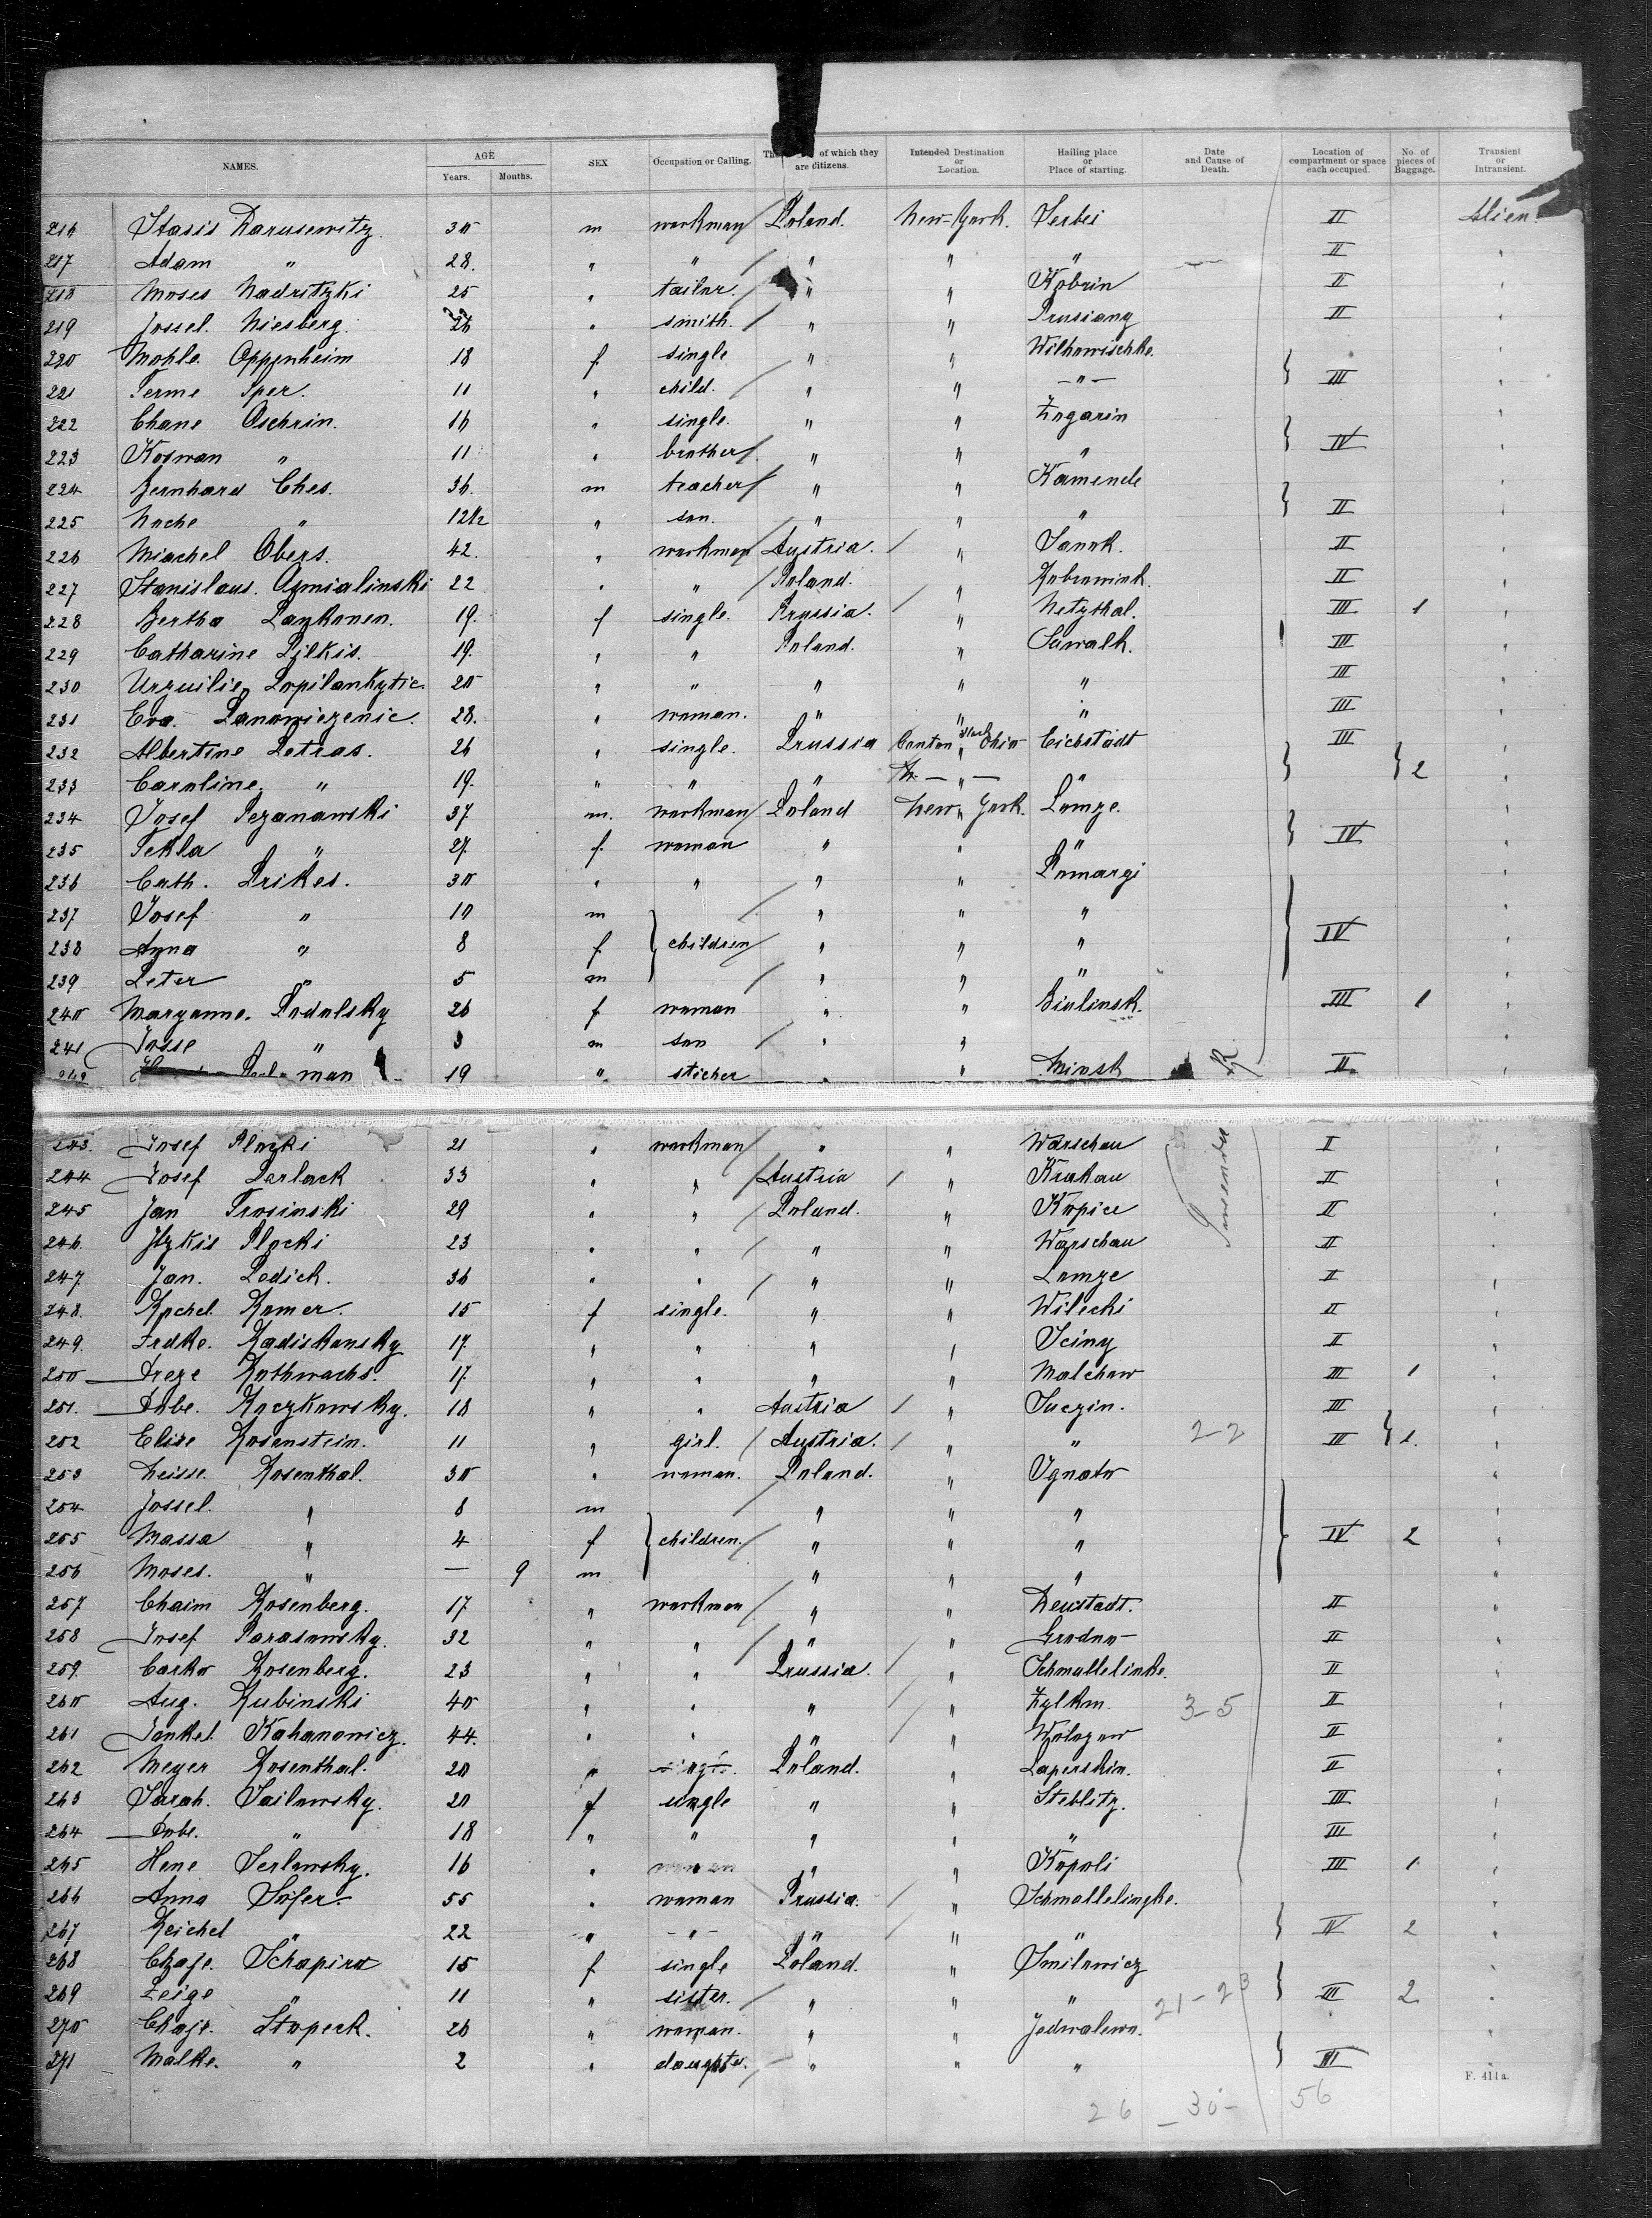 NAMES. AGE Years. Months. SEX Occupation or Calling. of which they are citizens. Intended Destination or Location. Hailing place or Place of starting. Date and Cause of Death. Location of compartment or space each occupied. No. of pieces of Baggage. Transient or Intransient.
216 Stasis Darusewitz 30 m workman / Poland. New-York. Serbei II Alien
217 Adam " 28. " " / " " " II "
218 Moses Nadritzki 25 " tailor. / " " Kobrin II "
219 Jossel. Niesberg. " smith. / " " Prusiany II "
220 Mohle. Oppenheim 18 f single " " Wilkowischke. "
221 Ferme Sper. 11 " child. / " " -"- } III "
222 Chane Oschrin. 16 " single. " " Zagarin "
223 Koswan " 11 " brother / " " " } IV "
224 Bernhard Ches. 36. m teacher / " " Kamende "
225 Noche " 12 1/2 " son. / " " " } II "
226 Miachel Obers. 42. " workman Austria. / " Sanok. II "
227 Stanislaus. Osmialinski 22 " " / Poland. " II "
228 Bertha Pankonen. 19. f single. Prussia. / " Netzthal. III 1 "
229 Catharine Pilkis. 19. " " Poland. " Suwalk. III "
230 20 " " " " " III "
231 Eva. Panowiczenic. 28. " woman. " " " III "
232 Albertine Petras. 26 " single. Prussia Canton Stark Ohio Eichstädt III "
233 Caroline. " 19. " " " - " - " } } 2 "
234 Josef Pezanawski 37 m. workman / Poland New York. Lomze. "
235 Tekla " 27. f. woman " " " } IV "
236 Cath. Prikes. 30 " " " " Pomargi "
237 Josef " 10 m / " " " "
238 Anna " 8 f } children / " " " } IV "
239 Peter " 5 m / " " " "
240 Maryanne. Podolsky 26 f woman " " Bialinsk. III 1 "
241 Josse " 3 m son / " " "
man 19 " sticher " " Minsk II "
243. Josef Plozki 21 " workman / " " Warschau I "
244 Josef Perlack 33 " " / Austria / " Krakau II "
245 Jan Trosinski 29 " " / Poland. " Kopice II "
246 Itzkis Plocki 23 " " / " " Warschau II "
247 Jan. Pedick. 36 " " / " " Lomze II "
248. Rochel. Romer. 15 f single. " " Wilecki II "
249. Fredke. Radiskansky 17. " " " " Sciny II "
250 Dreze Rothwachs. 17. " " " " Malchow III 1 "
251. Dobe. Roczkowsky. 18 " " Austria / " Suczin. III "
252 Elise Rosenstein. 11 " girl. / Austria. / " " 2-2 III } 1. "
253 Leisse. Rosenthal. 30 " woman. Poland. " Ignato "
254 Jossel. " 8 m / " " " "
255 Massa " 4 f } children. / " " " } IV 2 "
256 Moses. " — 9 m " " " "
257 Chaim Rosenberg. 17 " workman / " " Neustadt. II "
258 Josef Parasowsky. 32 " " / " " Grodno II "
259. Rosenberg. 23 " " Prussia. / " Schmallelinke. II "
260 Aug. Rubinski 40 " " " / " Zylkm. 3-5 II "
261 Jankel. Kahanowicz. 44. " " " / " Wolozow II "
262 Meyer Rosenthal. 20 " Poland. " Laperskin. II "
263 Sarah. Sailowsky. 20 f single " " Steblitz. III "
264 Dobe. " 18 " " " " " III "
265 Hene Serlowsky. 16 " " " Kopoli III 1 "
266 Anna Sofer. 55 " woman Prussia. / " Schmallelingke. "
267 Reichel " 22 " -"- " / " " } IV 2 "
268 Chaje. Schapiro 15 f single Poland. " Smilowicz "
269 Feige " 11 " sister. / " " " 21-23 } III 2 "
270 Chaje. Stopeck. 26 " woman. " " Jedwalewo. "
271 Malke. " 2 " daughter. / " " " } III "
F. 411a.
26 - 30 - 56